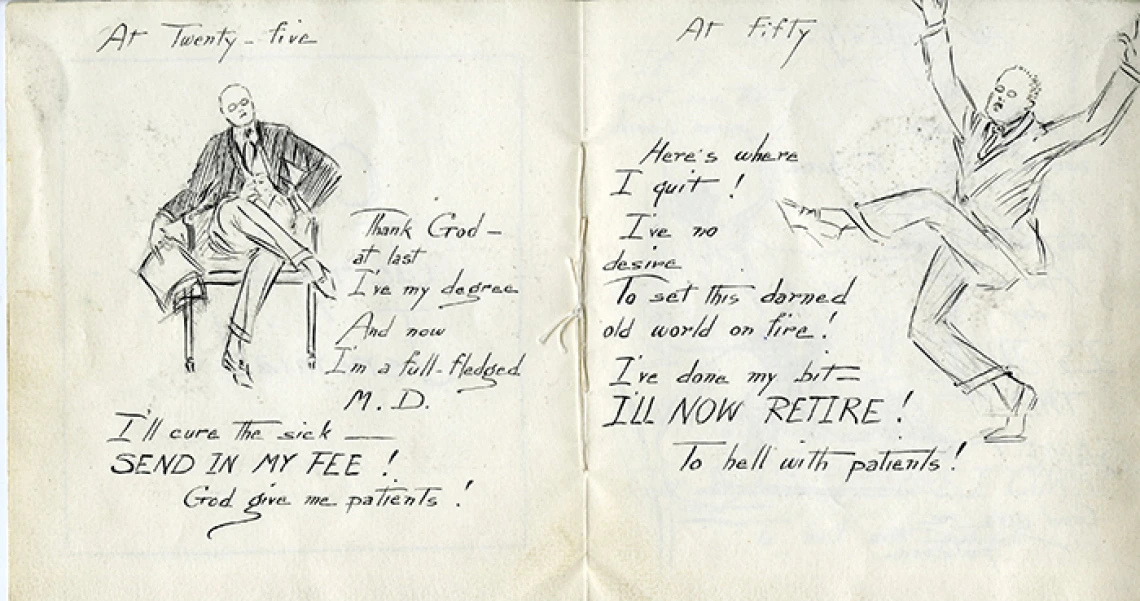 At Twenty-five
Thank God—
at last
I've my degree
And now
I'm a full-fledged
M.D.
I'll cure the sick —
SEND IN MY FEE!
God give me patients!
At Fifty
Here's where
I quit!
I've no
desire
To set this darned
old world on fire!
I've done my bit—
I'LL NOW RETIRE!
To hell with patients!